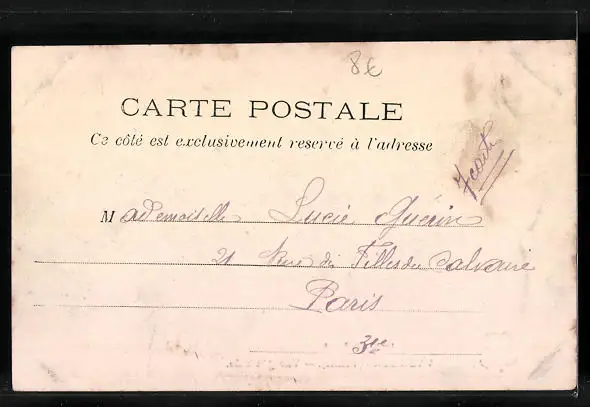 8€
CARTE POSTALE
Ce côté est exclusivement reservé à l'adresse
Mademoiselle Lucie Guérin
21 Rue des Filles du Calvaire
Paris
3e